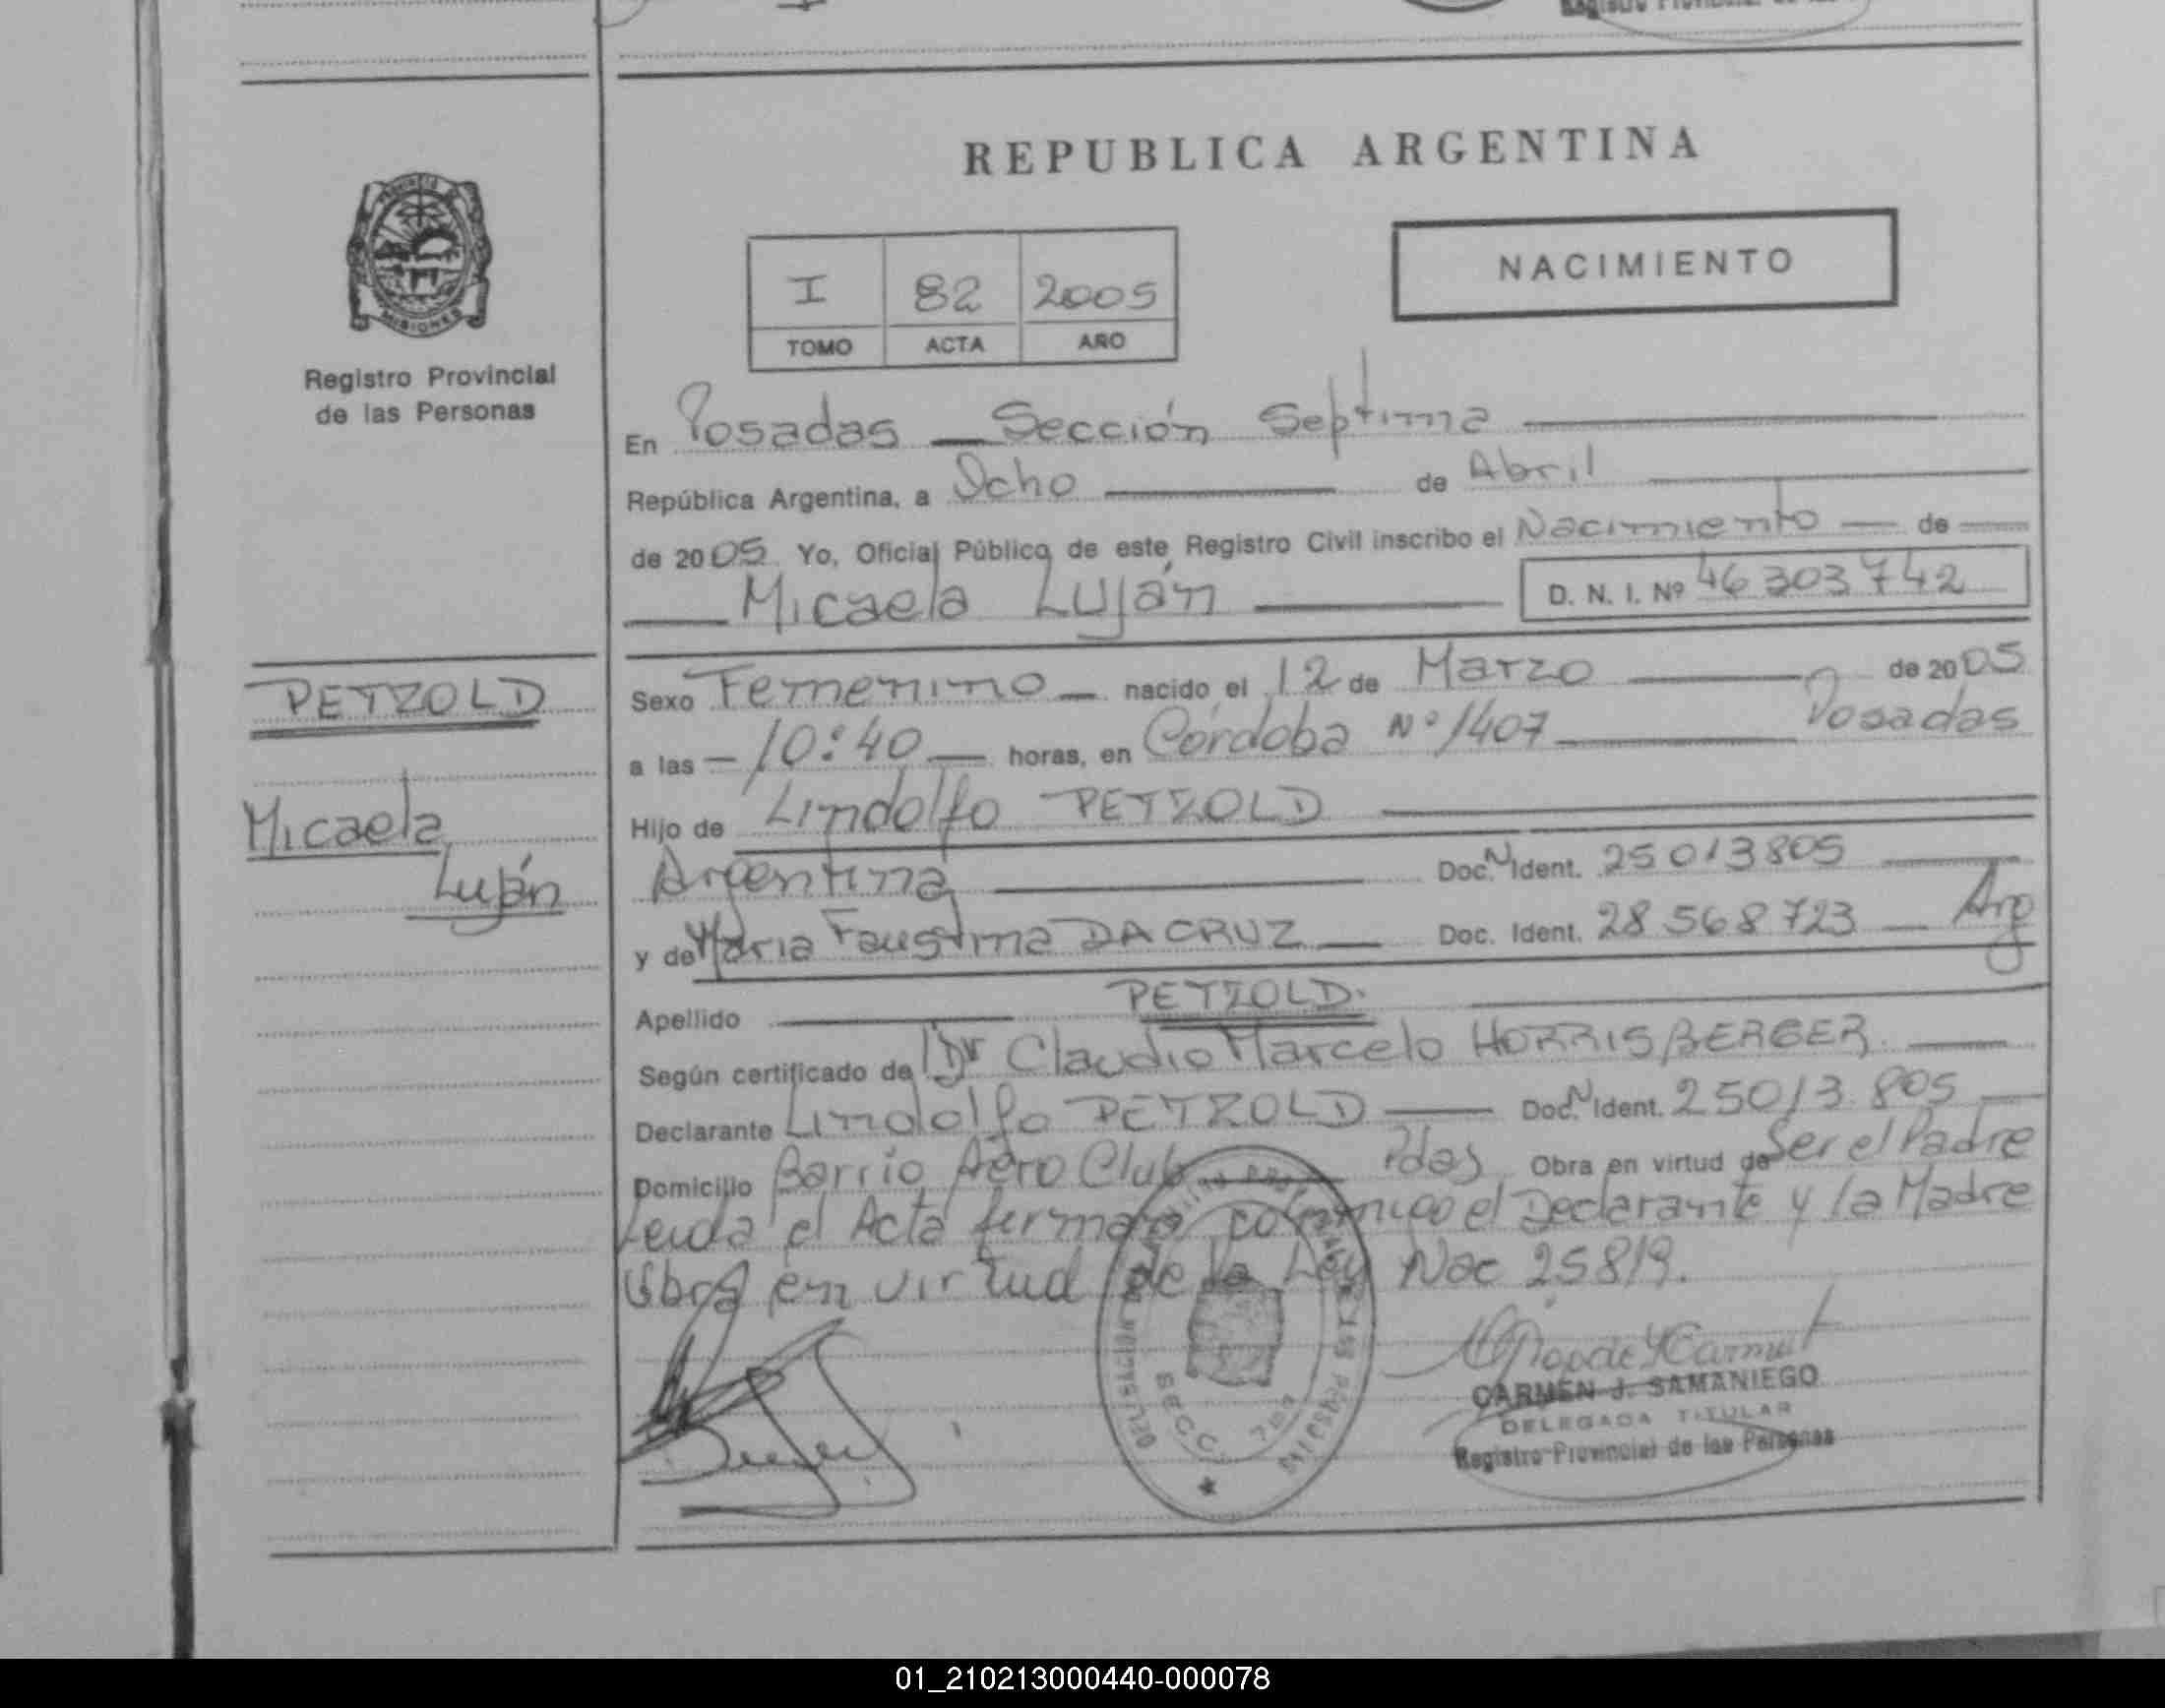 REPUBLICA ARGENTINA
MISIONES
Registro Provincial
de las Personas
I 82 2005
TOMO ACTA AÑO
NACIMIENTO
En Posadas — Sección Septima
República Argentina, a Ocho de Abril
de 2005 Yo, Oficial Público de este Registro Civil inscribo el Nacimiento — de
Micaela Luján D. N. I. Nº 46 303 742
PETZOLD
Micaela
Luján
Sexo Femenino — nacido el 12 de Marzo de 2005
a las — 10:40 — horas, en Córdoba Nº 1407 Posadas
Hijo de Lindolfo PETZOLD
Argentina Doc. N Ident. 25 013 805
y de Maria Faustina DA CRUZ — Doc. Ident. 28 568 723 — Arg
Apellido PETZOLD.
Según certificado de Dr Claudio Marcelo HORRISBERGER.
Declarante Lindolfo PETZOLD — Doc. N Ident. 25013.805
Domicilio Barrio Aero Club Pdas Obra en virtud de Ser el Padre
Leida el Acta firman conmigo el Declarante y la Madre
Obra en virtud de la Ley Nac 25819.
SECC. 7ma
CARMEN J. SAMANIEGO
DELEGADA TITULAR
Registro Provincial de las Personas
01_210213000440-000078